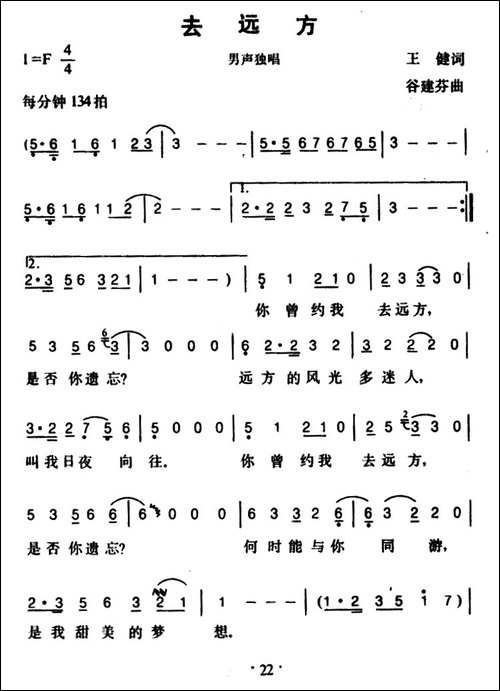 去远方
1=F 4/4 男声独唱 王健词
谷建芬曲
每分钟134拍
(5·6 1 6 1 23 | 3 - - - | 5·5 676765 | 3 - - - |
5·6 16 11 2 | 2 - - - | 1. 2·2 2 2 3 2 7 5 | 3 - - - :|
2. 2·3 56 321 | 1 - - - ) | 5 1 210 | 2 3 33 0 |
你曾约我 去远方,
5 3 56 3 | 3 0 0 0 | 6 2·2 3 2 | 3 2 2 2 0 |
是否你遗忘? 远方的风光多迷人,
3·2 2 7 5 6 | 5 0 0 0 | 5 1 210 | 2 5 3 3 0 |
叫我日夜向往. 你曾约我 去远方,
5 3 5 6 6 | 6 0 0 0 | 6 3 3 2 1 6 | 6 3 2 2 0 |
是否你遗忘? 何时能与你同游,
2·3 5 5 3 2 1 | 1 - - - | (1·2 3 5 1 7) |
是我甜美的梦想.
· 22 ·